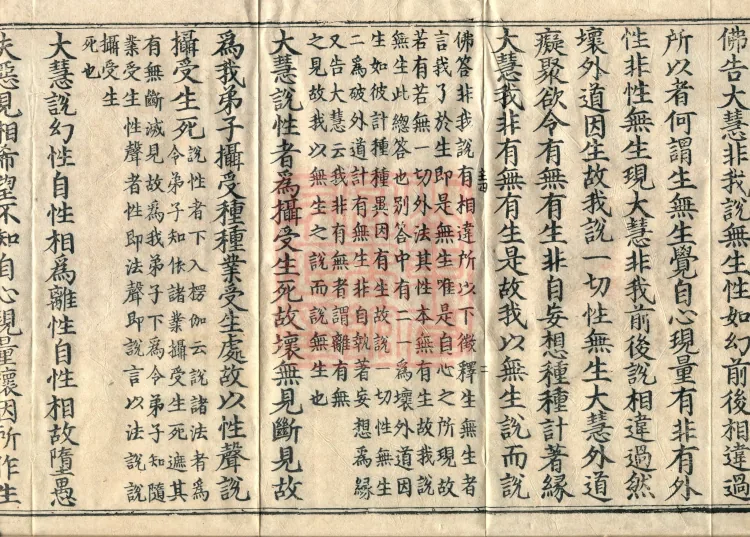 佛告大慧非我說無生性如幻前後相違過
所以者何謂生無生覺自心現量有非有外
性非性無生現大慧非我前後說相違過然
壞外道因生故我說一切性無生大慧外道
癡聚欲令有無有生非自妄想種種計著緣
大慧我非有無有生是故我以無生說而說
佛答非我說有相違所以下徵釋生無生者
言我了於生即是無生唯是自心之所現故
若有若無一切外法其性本無有生故我說
無生此總答也別答中有二一為壞外道因
生如彼計種種異因有生故說一切性無生
二為破外道計有無生非自執著妄想為緣
又告大慧云我非有無者謂離有無
之見故我以無生之說而說無生也
大慧說性者為攝受生死故壞無見斷見故
為我弟子攝受種種業受生處故以性聲說
攝受生死
說性者下入楞伽云說諸法者為
令弟子知依諸業攝受生死遮其
有無斷滅見故為我弟子下為令弟子知隨
業受生性聲者性即法聲即說言以法說說
攝受生
死也
大慧說幻性自性相為離性自性相故墮愚
夫惡見相希望不知自心現量壞因所作生